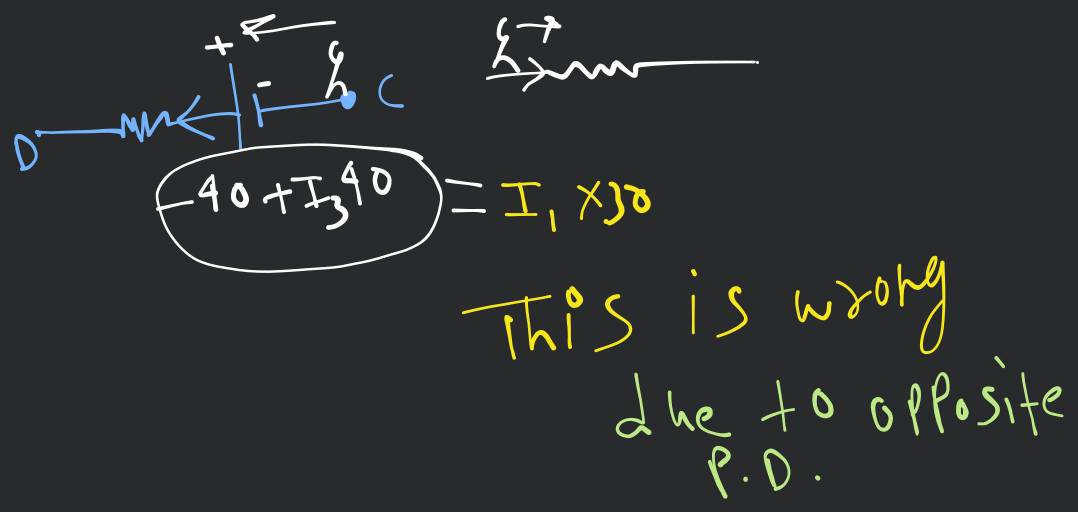 +
-
C
D
-40 + I₃40 = I₁ × 30
This is wrong
due to opposite
P.D.